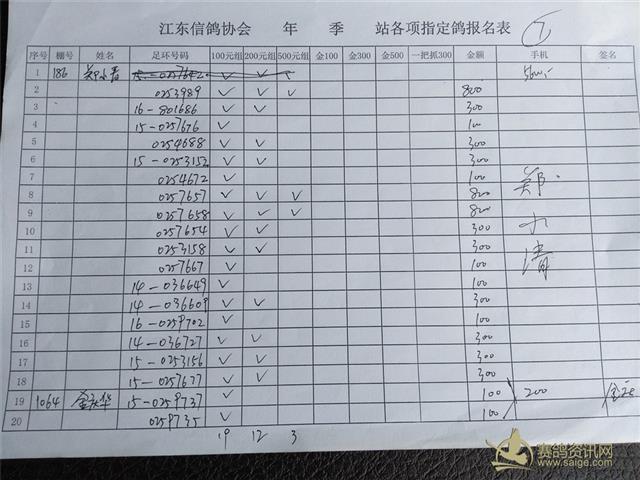 江东信鸽协会 年 季 站各项指定鸽报名表 7
序号 棚号 姓名 足环号码 100元组 200元组 500元组 金100 金300 金500 一把抓300 金额 手机 签名
1 186 15-0257642 ✓ ✓ ✓
2 0253989 ✓ ✓ ✓ 800
3 16-801686 ✓ ✓ 300
4 15-0257676 ✓ 100
5 0254688 ✓ ✓ 300
6 15-0253152 ✓ ✓ 300
7 0254672 ✓ 100
8 0257657 ✓ ✓ ✓ 800 郑
9 0257658 ✓ ✓ ✓ 800
10 0257654 ✓ ✓ 300
11 0253158 ✓ ✓ 300 清
12 0257667 ✓ 100
13 14-036649 ✓ 100
14 14-036609 ✓ ✓ 300
15 16-0259702 ✓ 100
16 14-036727 ✓ ✓ 300
17 15-0253156 ✓ ✓ 300
18 15-0257677 ✓ ✓ 300
19 1064 15-0259737 ✓ 100 200
20 0259735 ✓ 100
19 12 3
赛鸽资讯网
www.saige.com